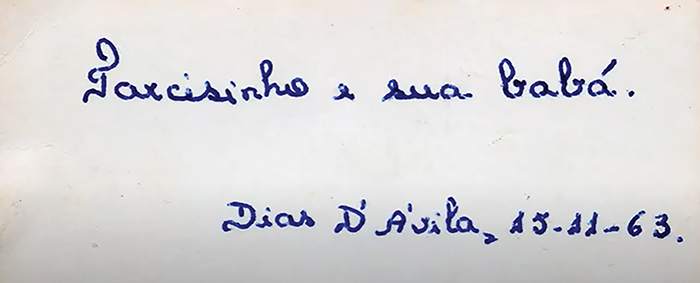 Tarcisinho e sua babá.
Dias D'Ávila, 15-11-63.